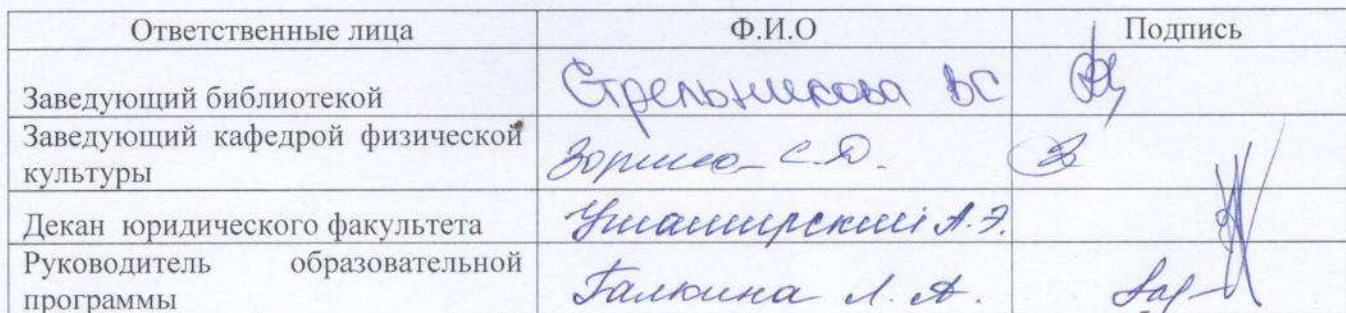 Ответственные лица Ф.И.О Подпись
Заведующий библиотекой Стрельникова ВС
Заведующий кафедрой физической
культуры С.Д.
Декан юридического факультета А.Э.
Руководитель образовательной
программы Галкина Л.А.